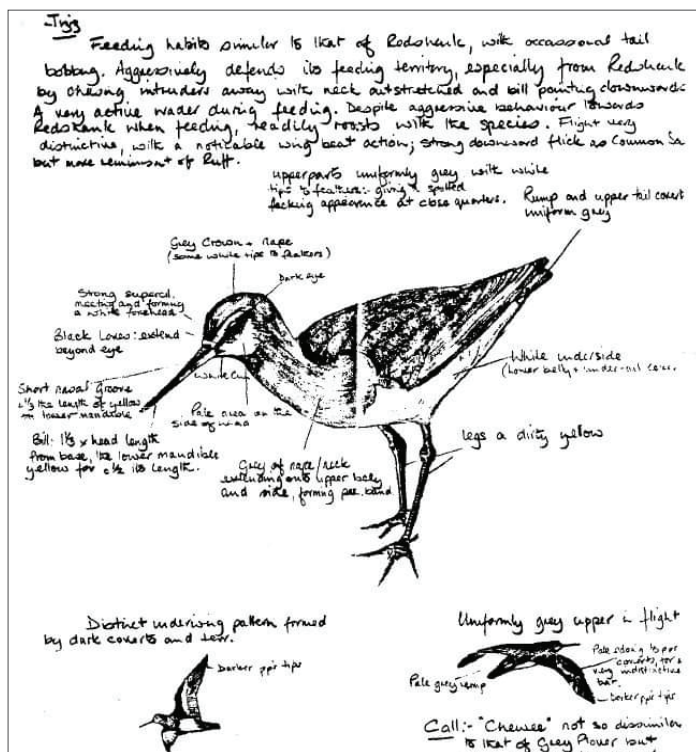 Feeding habits similar to that of Redshank, with occassional tail
bobbing. Aggressively defends its feeding territory, especially from Redshank
by chewing intruders away with neck outstretched and bill pointing downwards.
A very active wader during feeding. Despite aggressive behaviour towards
Redshank when feeding, readily roosts with the species. Flight very
distinctive, with a noticable wing beat action; strong downward flick as Common Sa
but more reminisant of Ruff.
upperparts uniformly grey with white
tips to feathers:- giving a spotted
appearance at close quarters.
Rump and upper tail covert
uniform grey
Grey Crown + Nape
(some white tips to feathers)
Dark eye
Strong supercil.
meeting and forming
a white forehead
Black Lores: extend
beyond eye
Short nasal groove
the length of yellow
on lower mandible
Bill: 1⅓ x head length
from base, the lower mandible
yellow for c ½ its length.
White
Pale area on the
side of
Grey of nape/neck
extending onto upper belly
and side, forming band
White underside
(lower belly +
legs a dirty yellow
Distinct underwing pattern formed
by dark coverts and
Darker ppr tips
Uniformly grey upper in flight
Pale edging to
coverts, for a
very indistinctive
bar.
Pale grey rump
Darker ppr tips
Call:- "Chewee" not so dissimilar
to that of Grey Plover but